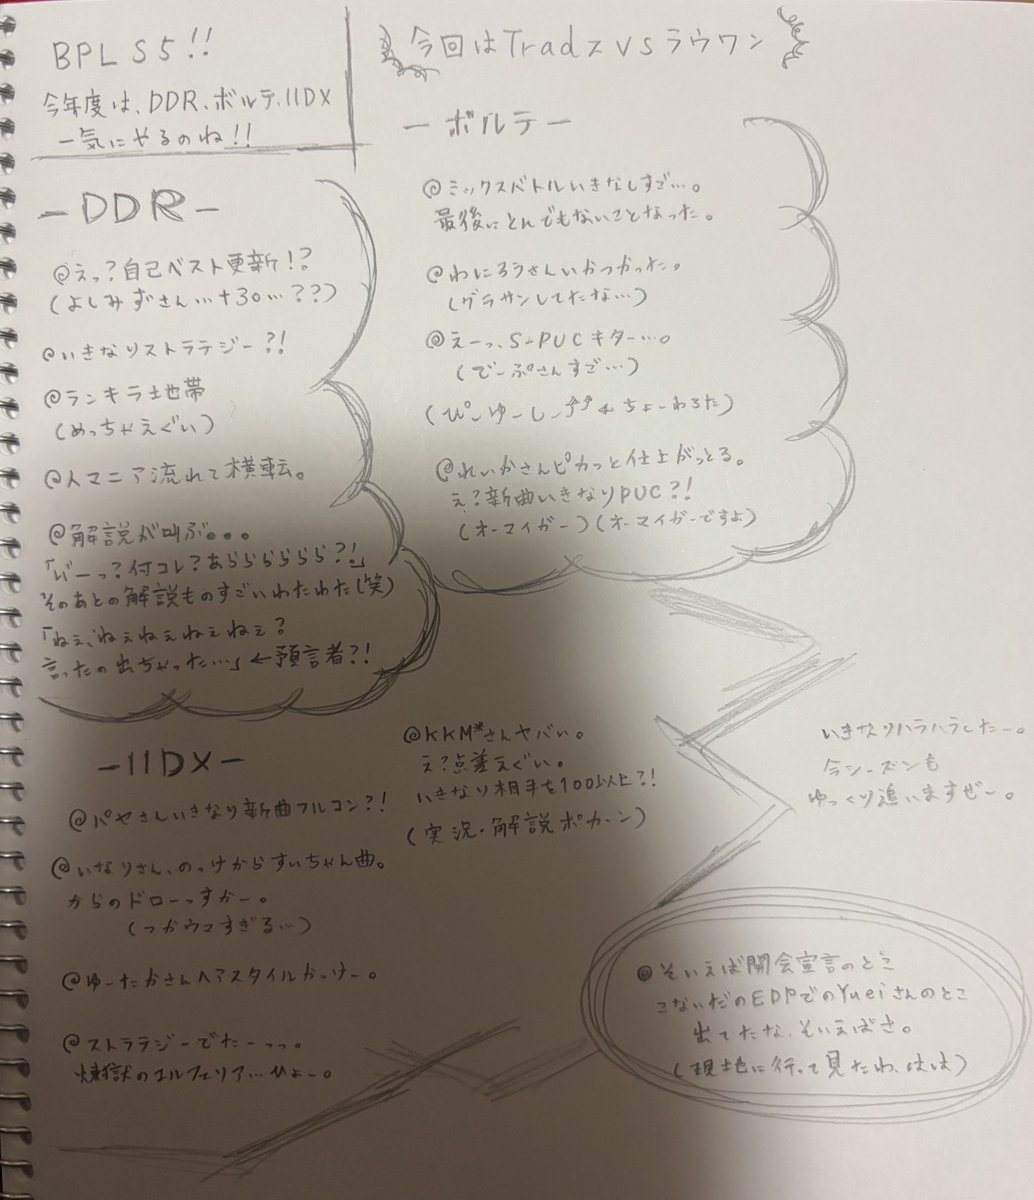 BPL S5!!
今年度は、DDR、ボルテ、IIDX
一気にやるのね!!
今回はTradz vs ラウワン
-DDR-
@えっ?自己ベスト更新!?
(よしみずさん…+30…??)
@いきなりストラテジー?!
@ランキラ地帯
(めっちゃえぐい)
@人マニア流れて横転。
@解説が叫ぶ。。。
何コレ?あらららららら?!。」
そのあとの解説ものすごいわたわた(笑)
「ねぇ、ねぇねぇねぇねぇ?
言ったの出ちゃった…」←預言者?!
-ボルテ-
@ミックスバトルいきなしすご…。
最後にとんでもないことなった。
@わにろうさんいかつかった。
(グラサンしてたな…)
@えーっ、S-PUCキター…。
(でーぷさんすご…)
(ぴーゆーしー ちょーわろた)
@れいかさんピカっと仕上がっとる。
え?新曲いきなりPUC?!
(オーマイガー)(オーマイガーですよ)
-IIDX-
@パヤさんいきなり新曲フルコン?!
@いなりさん、のっけからすいちゃん曲。
からのドローっすかー。
(つかウマすぎる…)
@ゆーたかさんヘアスタイルかっけー。
@ストラテジーでたーっっ。
煉獄のエルフェリア…ひょー。
@KKM*さんヤバい。
え?点差えぐい。
いきなり相手を100以上?!
(実況・解説ポカーン)
いきなりハラハラしたー。
今シーズンも
ゆっくり追いますぜ~。
@そいえば開会宣言のとこ
こないだのEDPでのYueiさんのとこ
出てたな、そいえばさ。
(現地に行って見たわ、はは)